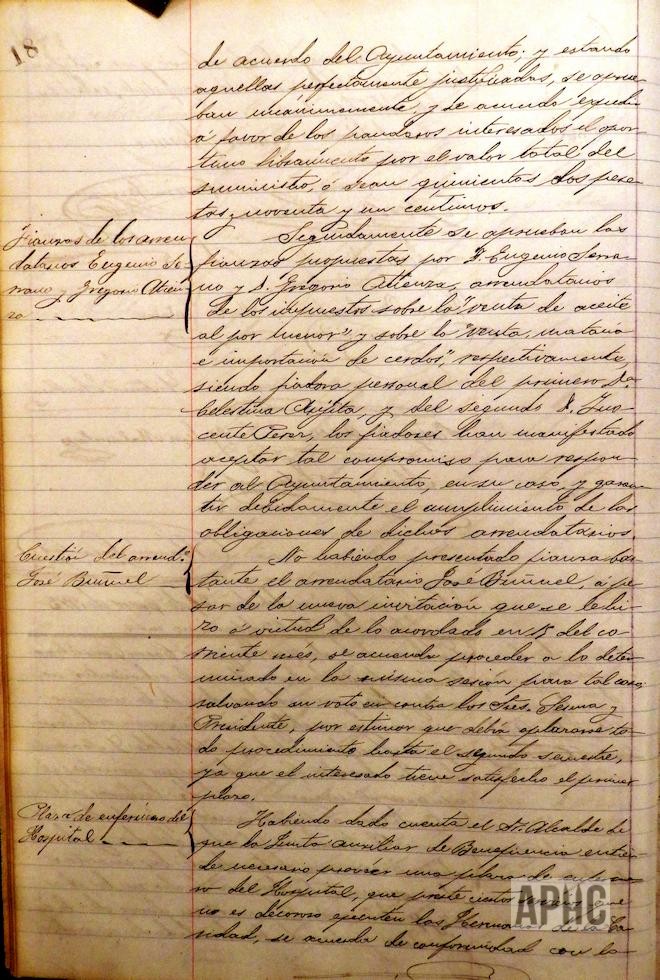 18
de acuerdo del Ayuntamiento; y estando
aquellas perfectamente justificadas, se aprue-
ban unánimemente y se acuerda expedir
á favor de los panaderos interesados el opor-
tuno libramiento por el valor total del
suministro, ó sean quinientas dos pese-
tas y noventa y un centimos.
Fianzas de los arren-
datarios Eugenio Se-
rrano y Gregorio Atien-
za
Seguidamente se aprueban las
fianzas propuestas por D. Eugenio Serra-
no y D. Gregorio Atienza, arrendatarios
de los impuestos sobre la "venta de aceite
al por menor" y sobre la "venta, matanza
e importación de cerdos", respectivamente
siendo fiadora personal del primero Dª
Celestina y del segundo D. Ino-
cente Perez, los fiadores han manifestado
aceptar tal compromiso para respon-
der al Ayuntamiento, en su caso, y garan-
tir debidamente el cumplimiento de las
obligaciones de dichos arrendatarios.
Cuestión del arrendº
José Buñuel
No habiendo presentado fianza bas-
tante el arrendatario José Buñuel, á pe-
sar de la nueva invitación que se le hi-
zo á virtud de lo acordado en del co-
rriente mes, se acuerda proceder a lo deter-
minado en la misma sesión para tal caso,
salvando su voto en contra los Sres. Sesma y
Presidente, por estimar que debía aplazarse to-
do procedimiento hasta el segundo semestre,
ya que el interesado tiene satisfecho el primer
plazo.
Plaza de enfermero del
Hospital
Habiendo dado cuenta el Sr. Alcalde de
que la Junta auxiliar de Beneficencia entien-
de necesario proveer una plaza de enferme-
ro del Hospital, que preste ciertos servicios que
no es decoroso ejecuten las Hermanas de la Ca-
ridad, se acuerda de conformidad con lo
APHC